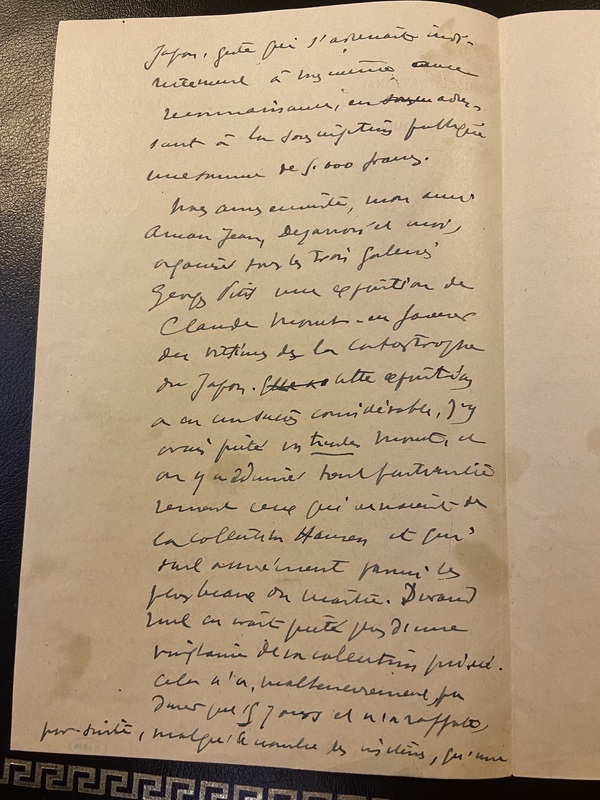 Japon, geste qui s'adressait indi-
rectement à moi-même avec
reconnaissance, en adres-
sant à la souscription publique
une somme de 5.000 francs.
Nous avons ensuite, mon ami
Aman Jean, et moi,
organisé dans les trois galeries
Georges Petit une exposition de
Claude Monet - en faveur
des victimes de la catastrophe
du Japon. cette exposition
a eu un succès considérable, j'y
avais prêté Monet, et
on y a admiré tout particuliè
rement ceux qui venaient de
la collection Hansen et qui
sont assurément parmi les
plus beaux du maître. Durand
Ruel en avait prêté plus d'une
vingtaine de sa collection privée.
Cela n'a, malheureusement, pu
durer que 15 jours et n'a rapporté,
par suite, malgré le nombre des visiteurs, qu'une